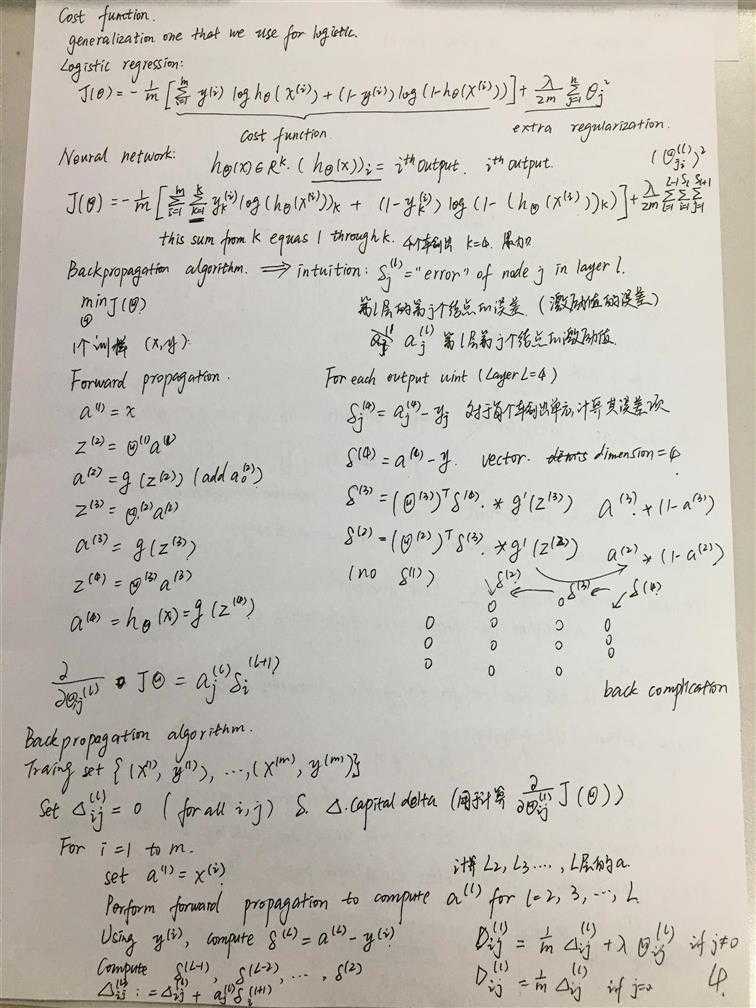 Cost function.
generalization one that we use for logistic.
Logistic regression:
J(θ) = -1/m [∑_{i=1}^{m} y^(i) log hθ(x^(i)) + (1-y^(i)) log(1-hθ(x^(i)))] + λ/2m ∑_{j=1}^{n} θj²
cost function. extra regularization.
Neural network: hΘ(x)∈R^k. (hΘ(x))i = i^th output. i^th output. (Θji^(l))²
J(Θ) = -1/m [∑_{i=1}^{m} ∑_{k=1}^{k} yk^(i) log(hΘ(x^(i)))k + (1-yk^(i)) log(1-(hΘ(x^(i)))k)] + λ/2m ∑_{l=1}^{L-1} ∑_{i=1}^{Sl} ∑_{j=1}^{Sl+1}
this sum from k equas 1 through k. 4个输出 k=4.
Backpropagation algorithm. ⟹ intuition: δj^(l) = "error" of node j in layer l.
min_Θ J(Θ) 第l层的第j个结点的误差. (激励值的误差)
aj^(l) 第l层第j个结点的激励值.
1个训样 (x,y):
Forward propagation. For each output uint (Layer L=4)
a^(1) = x δj^(4) = aj^(4) - yj 对于每个输出单元,计算其误差项
z^(2) = Θ^(1)a^(1) δ^(4) = a^(4) - y. vector. dimension = 4
a^(2) = g(z^(2)) (add a0^(2)) δ^(3) = (Θ^(3))^T δ^(4) .* g'(z^(3)) a^(3) .* (1-a^(3))
z^(3) = Θ^(2)a^(2) δ^(2) = (Θ^(2))^T δ^(3) .* g'(z^(2)) a^(2) .* (1-a^(2))
a^(3) = g(z^(3)) (no δ^(1)) δ^(2) ← δ^(3) ← δ^(4)
z^(4) = Θ^(3)a^(3)
a^(4) = hΘ(x) = g(z^(4))
∂/∂Θij^(l) JΘ = aj^(l) δi^(l+1) back complication
Backpropagation algorithm.
Traing set {(x^(1), y^(1)), ..., (x^(m), y^(m))}
Set Δij^(l) = 0 (for all i, j) δ. Δ. Capital delta (用于计算 ∂/∂Θij^(l) J(Θ))
For i=1 to m.
set a^(1) = x^(i) 计算 L2, L3 ..., L层的a.
Perform forward propagation to compute a^(l) for l=2, 3, ..., L
Using y^(i), compute δ^(L) = a^(L) - y^(i) Dij^(l) = 1/m Δij^(l) + λ Θij^(l) if j≠0
Compute δ^(L-1), δ^(L-2), ..., δ^(2) Dij^(l) = 1/m Δij^(l) if j=0
Δij^(l) := Δij^(l) + aj^(l) δi^(l+1) 4.